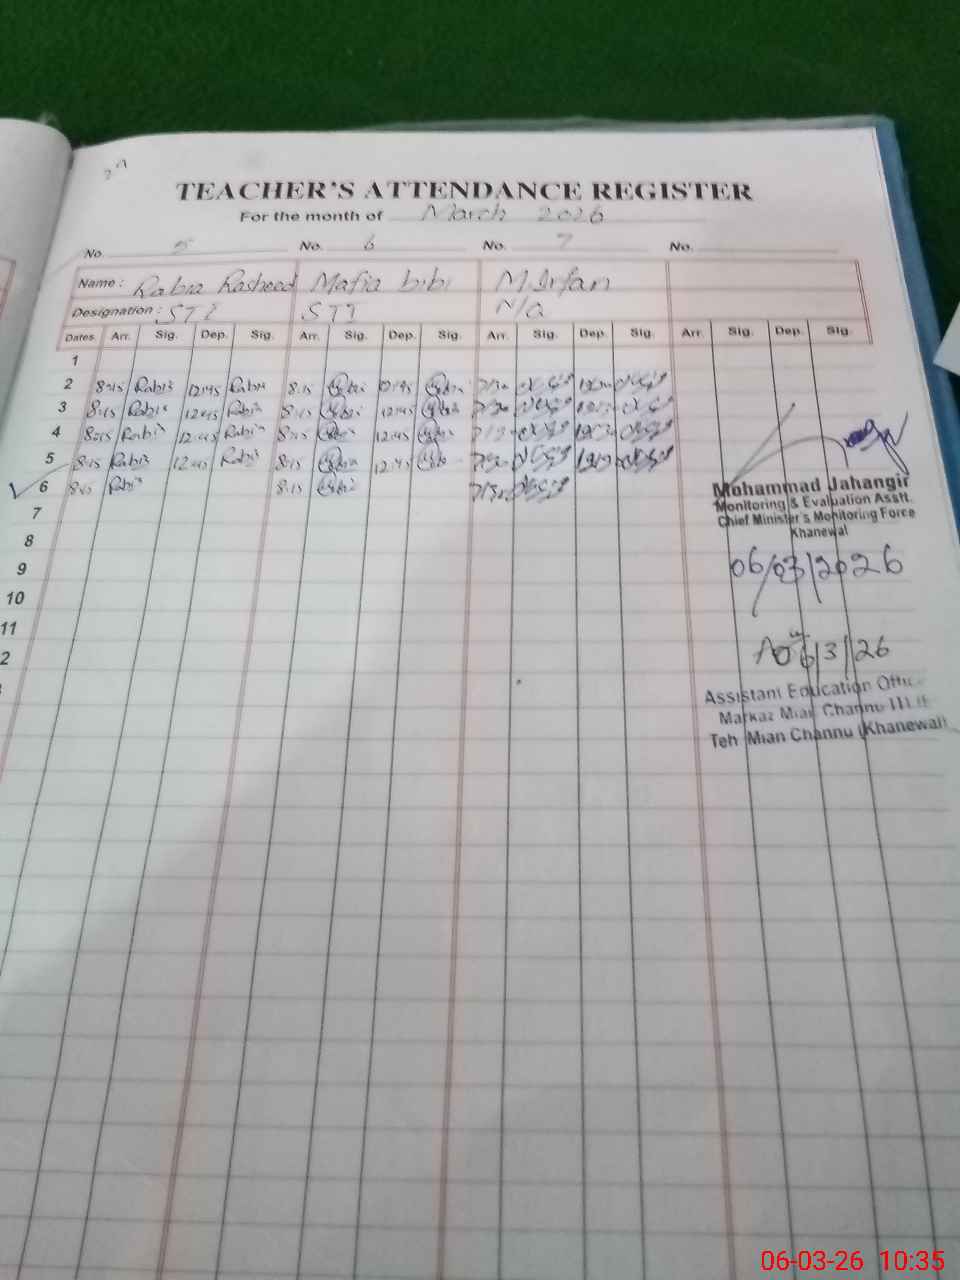 TEACHER'S ATTENDANCE REGISTER
For the month of March 2026
No. 5 No. 6 No. 7 No.
Name : Rabia Rasheed Mafia bibi M.Irfan
Designation : STI STI N/Q
Dates. Arr. Sig. Dep. Sig. Arr. Sig. Dep. Sig. Arr. Sig. Dep. Sig. Arr. Sig. Dep. Sig.
1
2 8:15 Rabia 12:45 Rabia 8:15 12:45 7:30
3 8:15 Rabia 12:45 Rabia 8:15 12:45 7:30
4 8:15 Rabia 12:45 Rabia 8:15 12:45
5 8:15 Rabia 12:45 Rabia 8:15 12:45 7:30
6 8:15 Rabia 8:15 7:30
7
8
9
10
11
2
Mohammad Jahangir
Monitoring & Evaluation Asstt.
Chief Minister's Monitoring Force
Khanewal
06/03/2026
06/3/26
Assistant Education Office
Markaz Mian Channu
Teh Mian Channu (Khanewal)
06-03-26 10:35